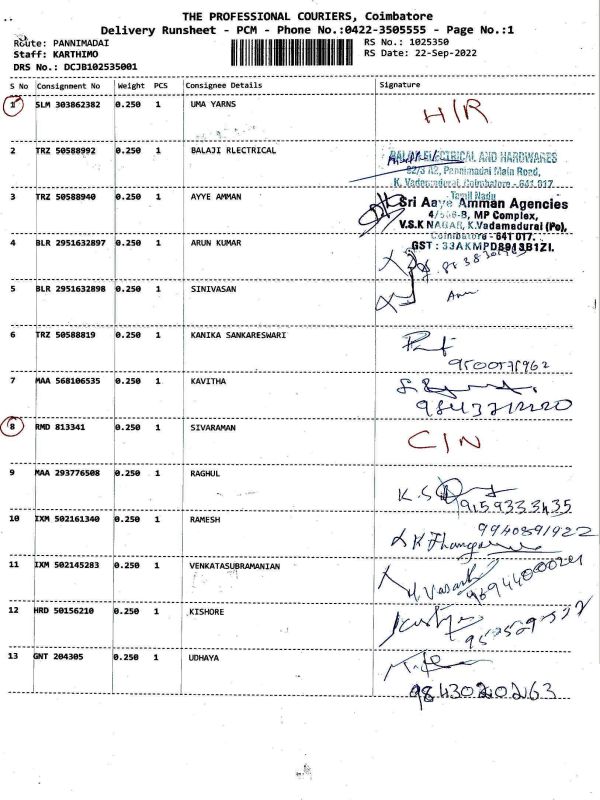 THE PROFESSIONAL COURIERS, Coimbatore
Delivery Runsheet - PCM - Phone No.:0422-3505555 - Page No.:1
Route: PANNIMADAI
Staff: KARTHIMO
DRS No.: DCJB102535001
RS No.: 1025350
RS Date: 22-Sep-2022
S No Consignment No Weight PCS Consignee Details Signature
1 SLM 303862382 0.250 1 UMA YARNS H/R
2 TRZ 50588992 0.250 1 BALAJI RLECTRICAL
BALAJI ELECTRICAL AND HARDWARES
62/3 A2, Pannimadai Main Road,
K. Vadamadurai, Coimbatore - 641 017
Tamil Nadu
3 TRZ 50588940 0.250 1 AYYE AMMAN
Sri Aaye Amman Agencies
MP Complex,
V.S.K NAGAR, K.Vadamadurai (Po),
Coimbatore - 641 017.
GST : 33AKMPD8913B1ZI.
4 BLR 2951632897 0.250 1 ARUN KUMAR
5 BLR 2951632898 0.250 1 SINIVASAN
6 TRZ 50588819 0.250 1 KANIKA SANKARESWARI
7 MAA 568106535 0.250 1 KAVITHA
8 RMD 813341 0.250 1 SIVARAMAN C/N
9 MAA 293776508 0.250 1 RAGHUL
9159333435
10 IXM 502161340 0.250 1 RAMESH
9940891922
11 IXM 502145283 0.250 1 VENKATASUBRAMANIAN
12 HRD 50156210 0.250 1 KISHORE
13 GNT 204305 0.250 1 UDHAYA